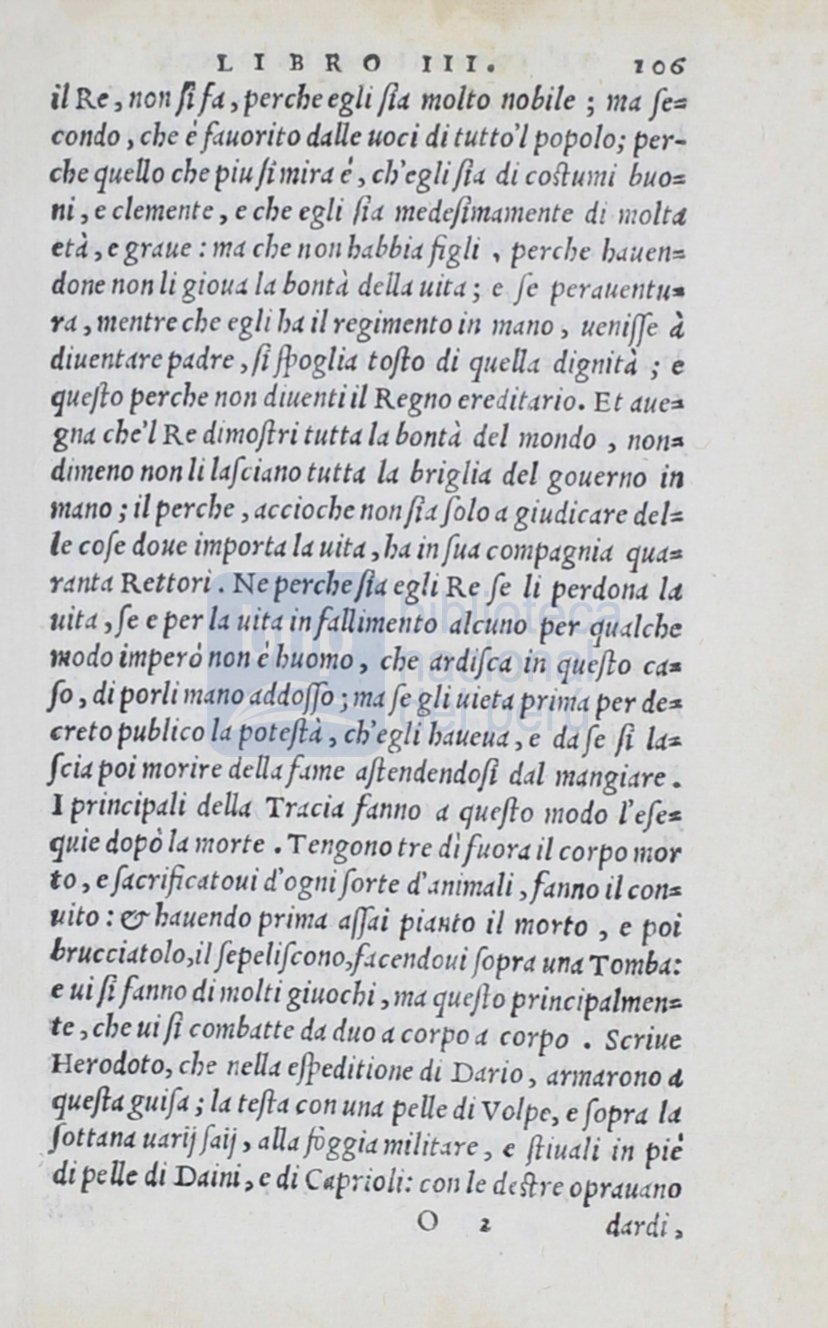 LIBRO III. 106
il Re, non ſi fa, perche egli ſia molto nobile ; ma ſe=
condo, che è fauorito dalle uoci di tutto'l popolo; per-
che quello che piu ſi mira é, ch'egli ſia di coſtumi buo=
ni, e clemente, e che egli ſia medeſimamente di molta
età, e graue : ma che non habbia figli , perche hauen=
done non li gioua la bontà della uita ; e ſe perauentu=
ra, mentre che egli ha il regimento in mano, ueniſſe à
diuentare padre, ſi ſpoglia toſto di quella dignità ; e
queſto perche non diuenti il Regno ereditario. Et aue=
gna che'l Re dimoſtri tutta la bontà del mondo , non=
dimeno non li laſciano tutta la briglia del gouerno in
mano ; il perche, accioche non ſia ſolo a giudicare del=
le coſe doue importa la uita, ha in ſua compagnia qua=
ranta Rettori. Ne perche ſia egli Re ſe li perdona la
uita, ſe e per la uita in fallimento alcuno per qualche
modo imperò non è huomo, che ardiſca in queſto ca=
ſo, di porli mano addoſſo ; ma ſe gli uieta prima per de=
creto publico la poteſtà, ch'egli haueua, e da ſe ſi la=
ſcia poi morire della fame aſtendendoſi dal mangiare.
I principali della Tracia fanno a queſto modo l'eſe=
quie dopò la morte. Tengono tre dì fuora il corpo mor
to, e ſacrificatoui d'ogni ſorte d'animali, fanno il con=
uito : & hauendo prima aſſai pianto il morto , e poi
brucciatolo, il ſepeliſcono, facendoui ſopra una Tomba:
e ui ſi fanno di molti giuochi, ma queſto principalmen=
te, che ui ſi combatte da duo a corpo a corpo . Scriue
Herodoto, che nella eſpeditione di Dario, armarono a
queſta guiſa ; la teſta con una pelle di Volpe, e ſopra la
ſottana uarij ſaij, alla foggia militare, e ſtiuali in piè
di pelle di Daini, e di Caprioli: con le deſtre oprauano
O 2 dardi,
biblioteca
nacional
del perú